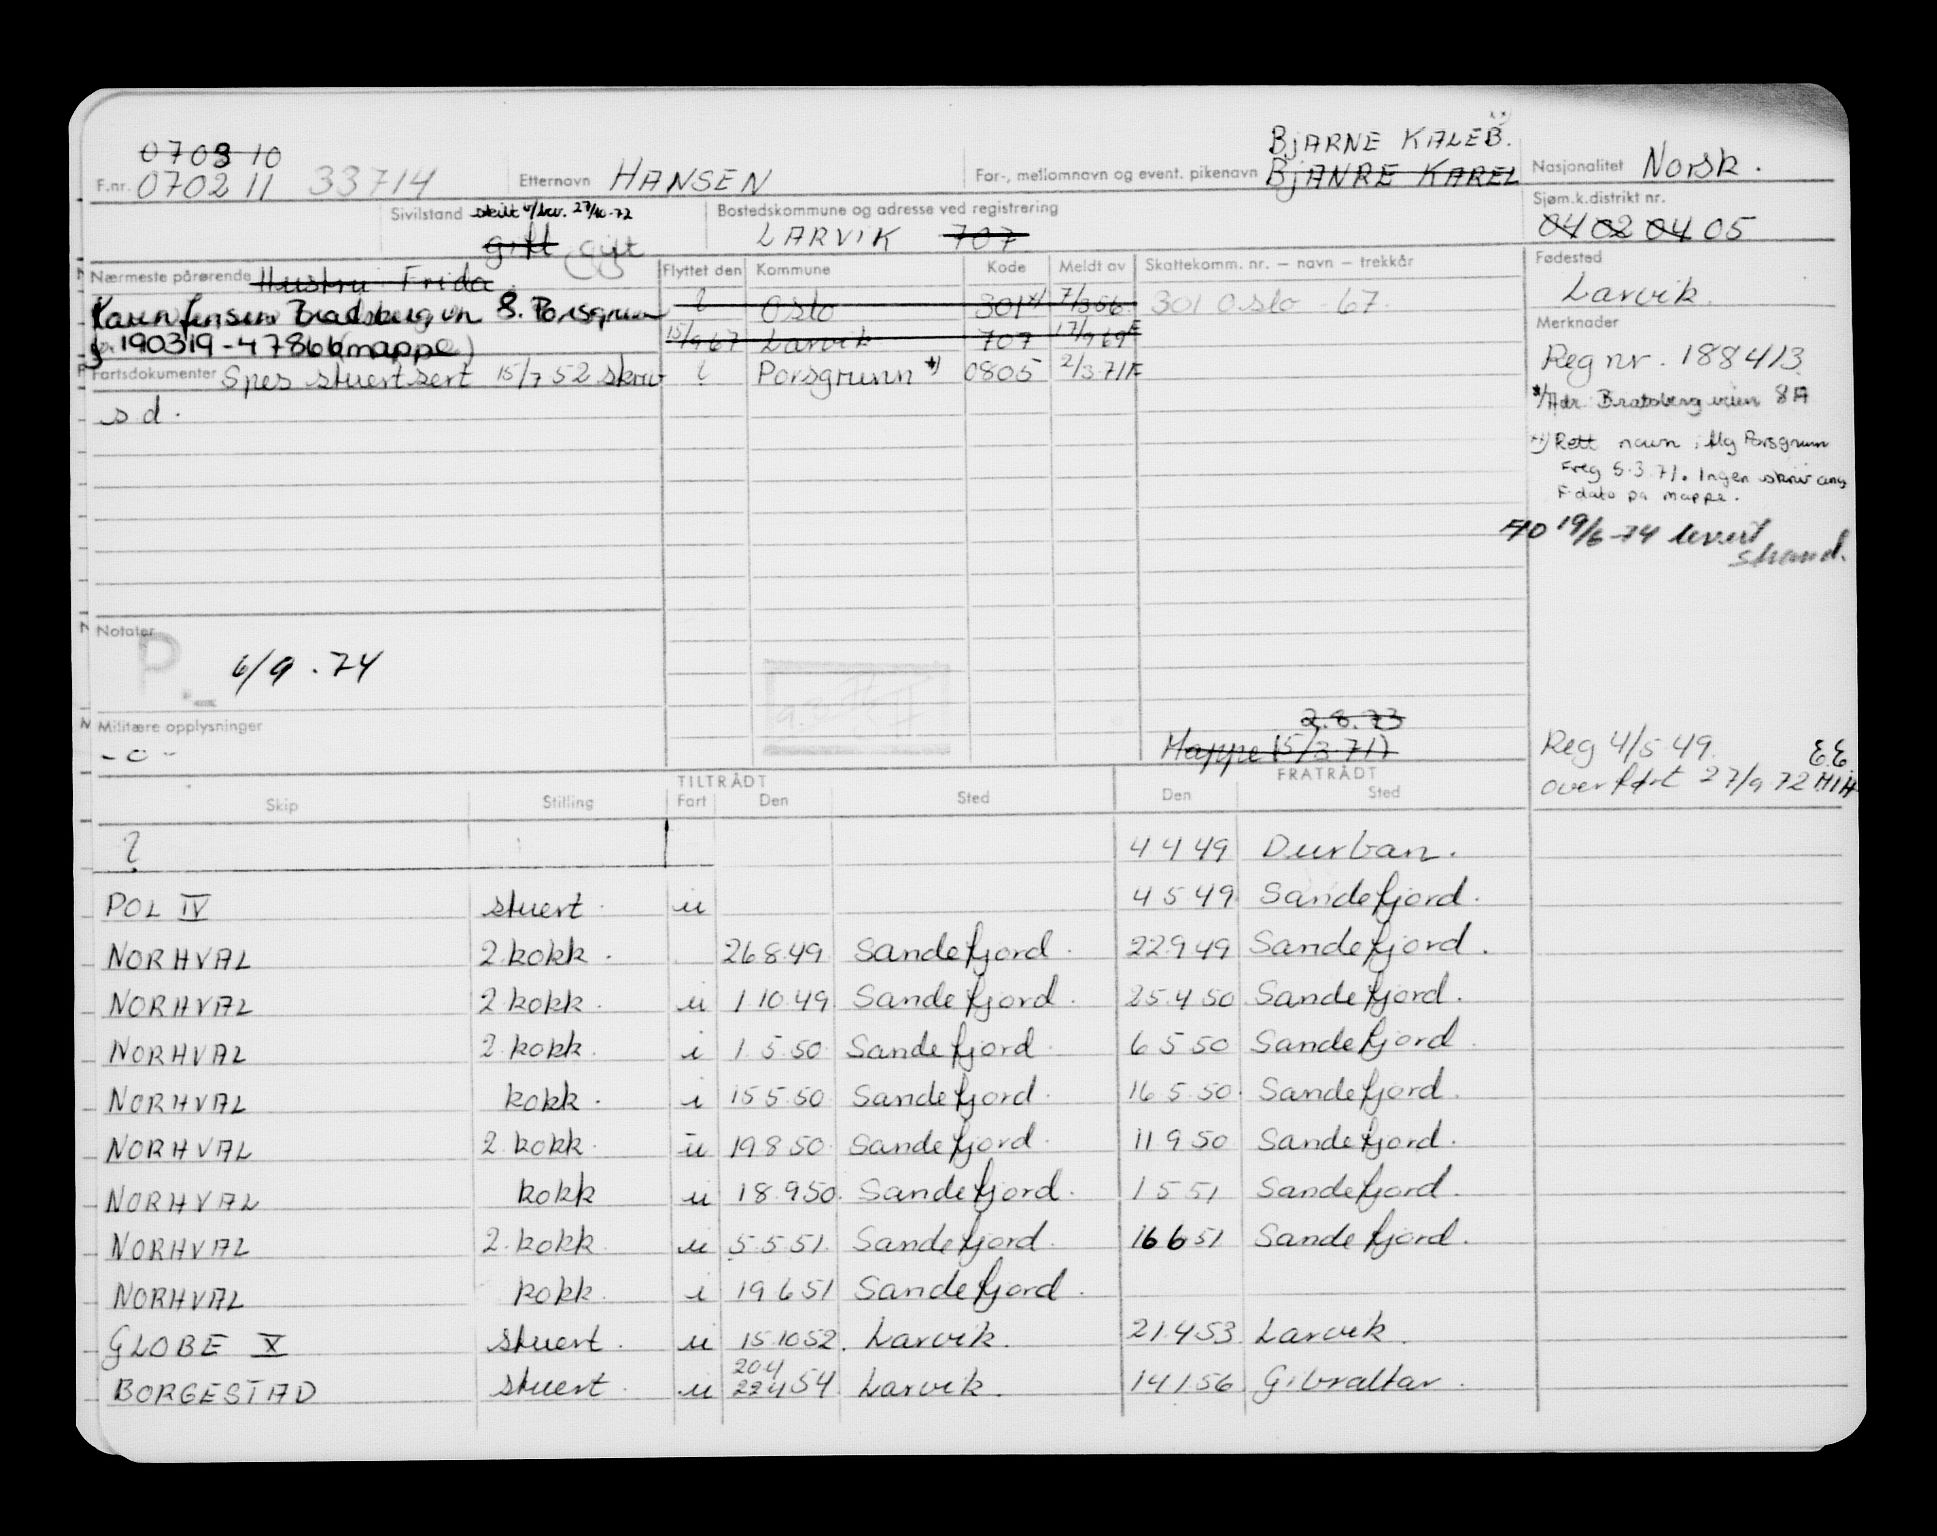 070310
BJARNE KALEB.
F.nr. 070211 33714 Etternavn HANSEN For-, mellomnavn og event. pikenavn BJANRE KAREL Nasjonalitet Norsk.
Sivilstand skilt 27/10-72 Bostedskommune og adresse ved registrering Sjøm.k.distrikt nr.
gift gift LARVIK 707 04 02 04 05
Nærmeste pårørende Hustru Frida Flyttet den Kommune Kode Meldt av Skattekomm. nr. – navn – trekkår Fødested
Karen Jensen Bradsberg vn 8. Porsgrunn ? Oslo 301 7/3 56. 301 Oslo - 67. Larvik.
190319-47866 mappe) 15/9 67 Larvik 707 17/9 69 Merknader
Fartsdokumenter Spes stuertsert 15/7 52 skriv ? Porsgrunn *) 0805 2/3.71F Reg nr. 188413
s d. */Adr. Bratsbergveien 8A
Rett navn i flg Porsgrunn
Freg 5.3.71. Ingen skriv ang
F dato på mappe.
19/6-74 levert
strand.
Notater
P. 6/9.74
Militære opplysninger
- o -
2.8.73
Mappe 15/3.71) Reg 4/5 49. E.E
overført 27/9 72 HIH
TILTRÅDT FRATRÅDT
Skip Stilling Fart Den Sted Den Sted
? 4 4 49 Durban.
POL IV stuert. u 4 5 49 Sandefjord.
NORHVAL 2. kokk. 26 8 49 Sandefjord. 22 9 49 Sandefjord.
NORHVAL 2. kokk. u 1 10 49 Sandefjord. 25 4 50 Sandefjord.
NORHVAL 2. kokk. i 1 5 50 Sandefjord. 6 5 50 Sandefjord.
NORHVAL kokk. i 15 5 50 Sandefjord. 16 5 50 Sandefjord.
NORHVAL 2. kokk. u 19 8 50 Sandefjord. 11 9 50 Sandefjord.
NORHVAL kokk u 18 9 50. Sandefjord. 1 5 51 Sandefjord.
NORHVAL 2. kokk. u 5 5 51. Sandefjord. 16 6 51 Sandefjord.
NORHVAL kokk. i 19 6 51 Sandefjord.
GLOBE X stuert. u 15 10 52. Larvik. 21 4 53. Larvik.
20 4
BORGESTAD stuert. u 22 4 54 Larvik. 14 1 56 Gibraltar.